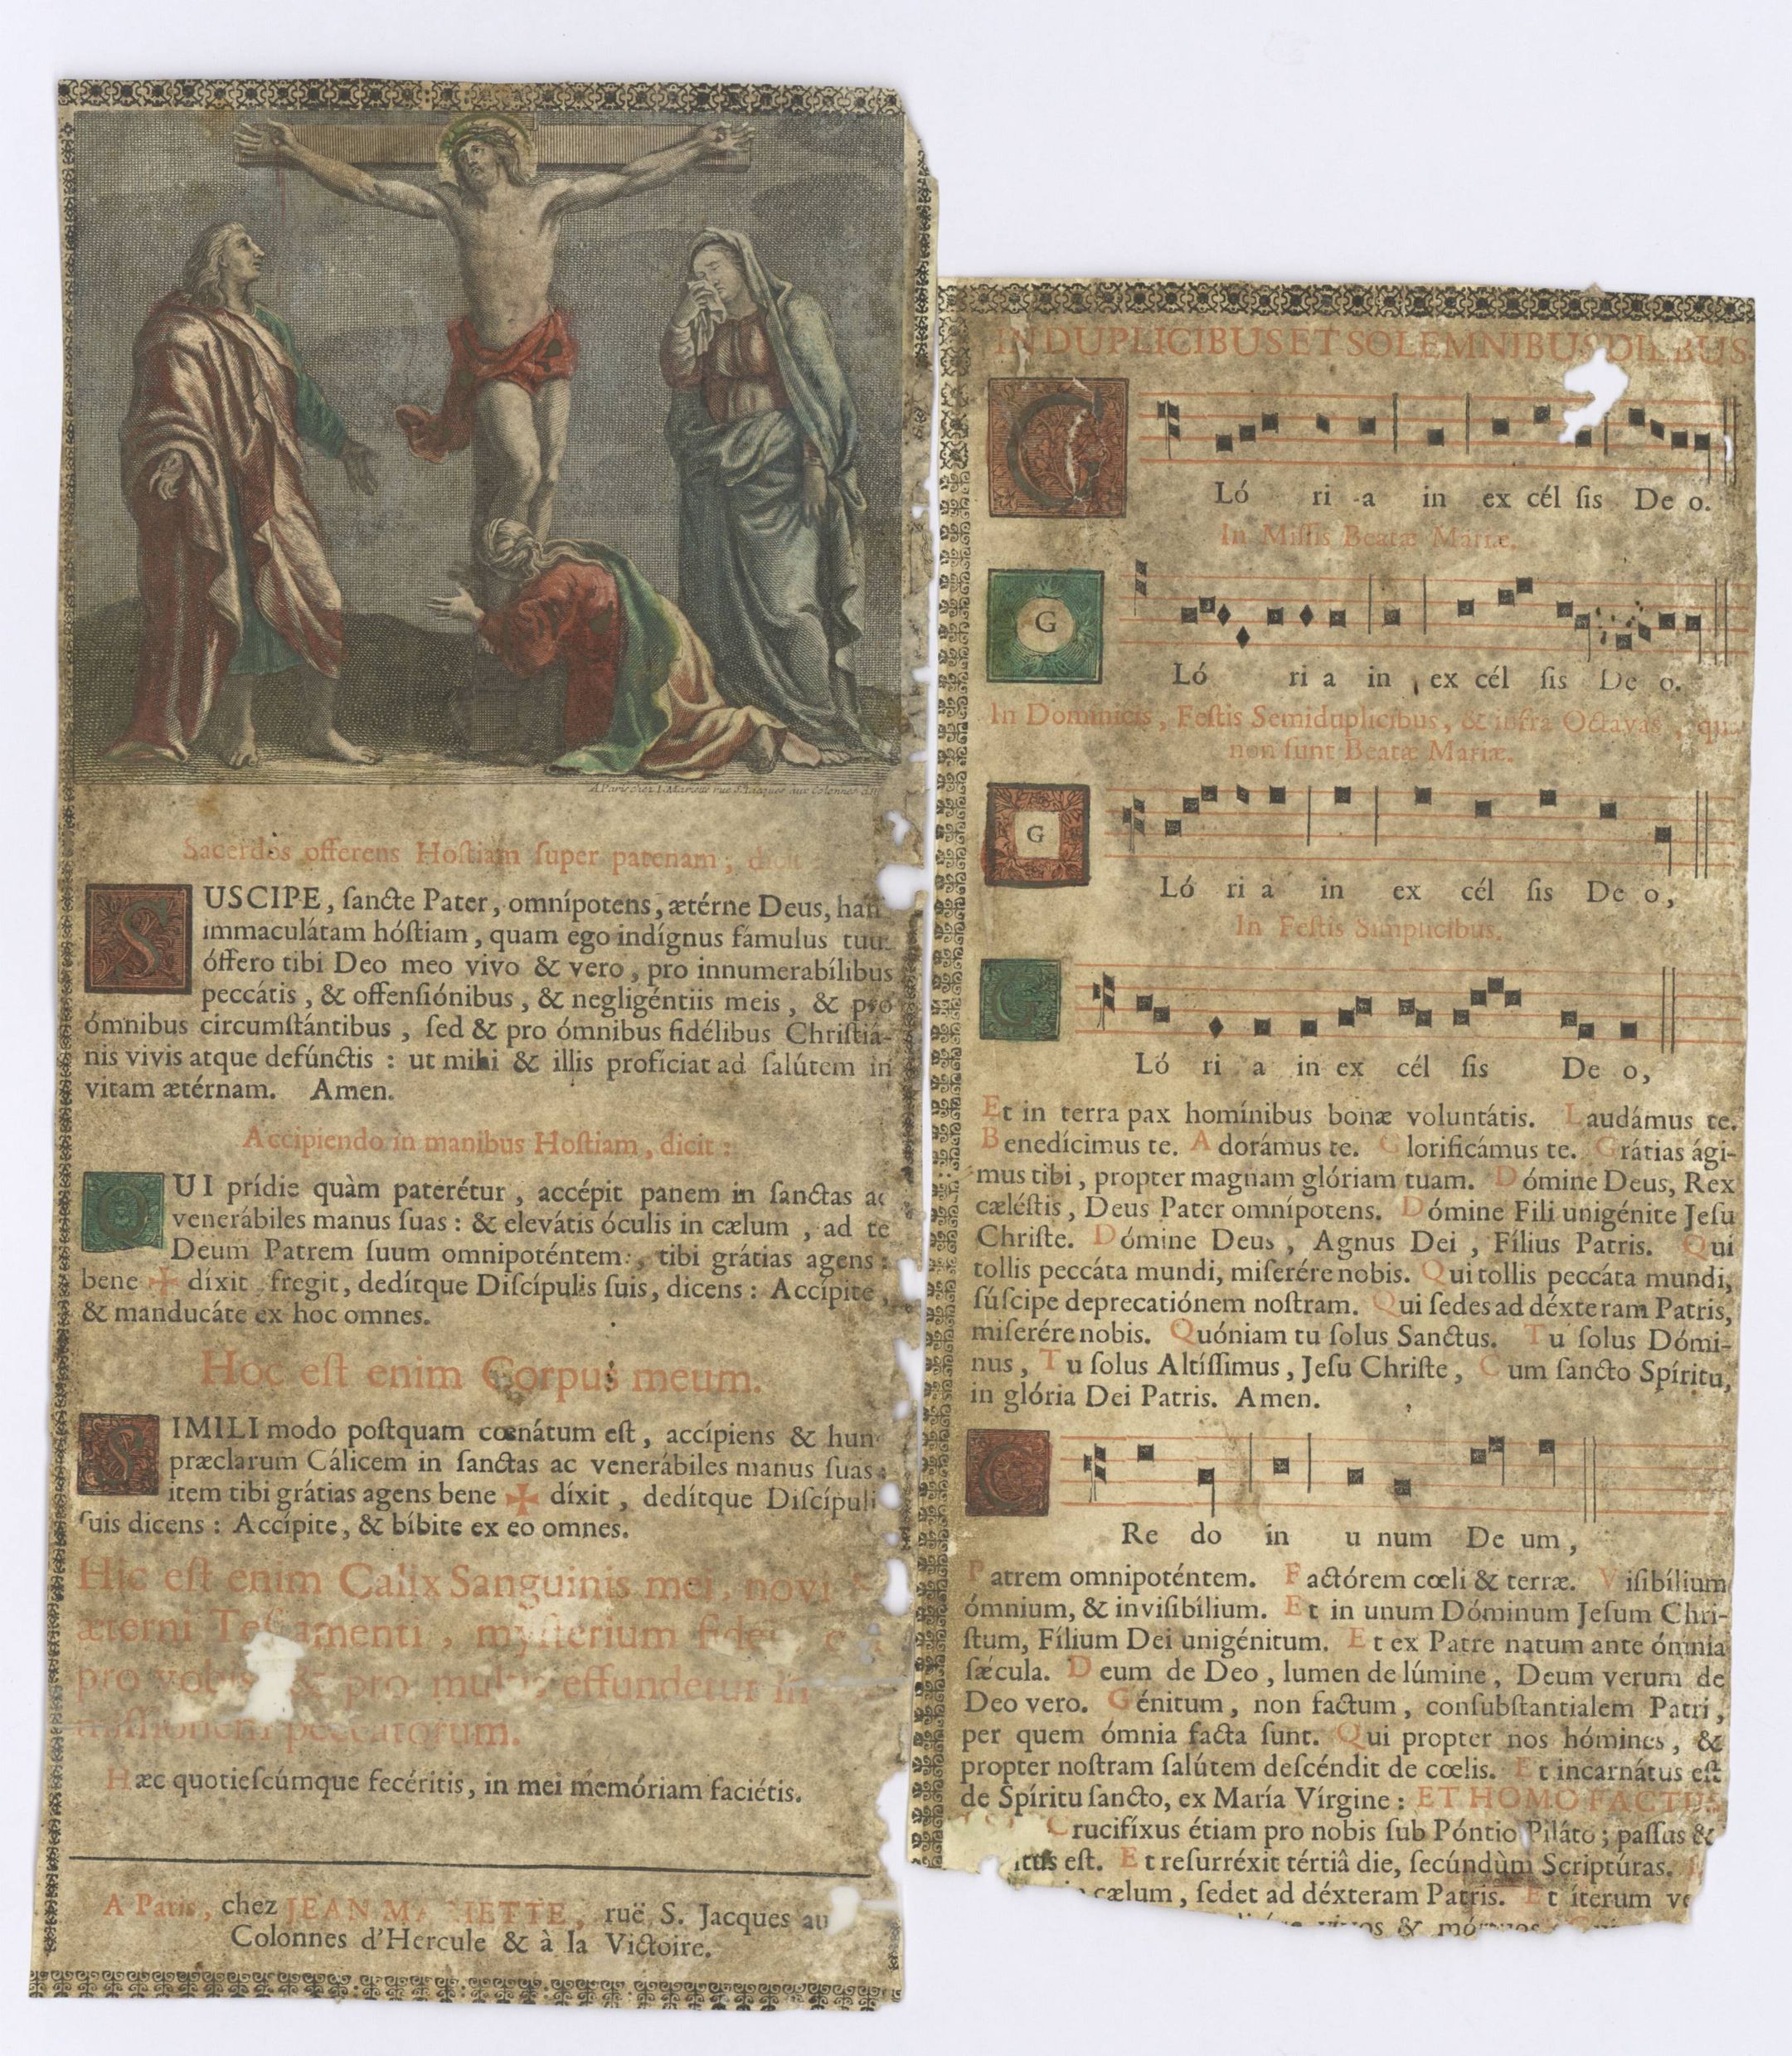 A Paris chez I. Mariette rue S. Iacques aux Colonnes
Sacerdos offerens Hoſtiam ſuper patenam, dicit
SUSCIPE, ſancte Pater, omnípotens, ætérne Deus, han
immaculátam hóſtiam, quam ego indígnus fámulus tuu
óffero tibi Deo meo vivo & vero, pro innumerabílibus
peccátis, & offenſiónibus, & negligéntiis meis, & pro
ómnibus circumſtántibus, ſed & pro ómnibus fidélibus Chriſtiá-
nis vivis atque defúnctis : ut mihi & illis profíciat ad ſalútem in
vitam ætérnam. Amen.
Accipiendo in manibus Hoſtiam, dicit :
QUI prídie quàm paterétur, accépit panem in ſanctas ac
venerábiles manus ſuas : & elevátis óculis in cælum, ad te
Deum Patrem ſuum omnipoténtem, tibi grátias agens :
bene ✠ díxit fregit, dedítque Diſcípulis ſuis, dicens : Accípite,
& manducáte ex hoc omnes.
Hoc eſt enim Corpus meum.
SIMILI modo poſtquam cœnátum eſt, accípiens & hun
præclarum Cálicem in ſanctas ac venerábiles manus ſuas :
item tibi grátias agens bene ✠ díxit, dedítque Diſcípuli
ſuis dicens : Accípite, & bíbite ex eo omnes.
Hic eſt enim Calix Sanguinis mei, novi &
æterni Teſtamenti, myſterium fidei
pro vobis & pro multis effundetur in
miſſionem peccatorum.
Hæc quotieſcúmque fecéritis, in mei memóriam faciétis.
A Paris, chez JEAN MARIETTE, ruë S. Jacques au
Colonnes d'Hercule & à la Victoire.
IN DUPLICIBUS ET SOLEMNIBUS DIEBUS
GLó ri a in ex cél ſis De o.
In Miſſis Beatæ Mariæ.
GLó ri a in ex cél ſis De o.
In Dominicis, Feſtis Semiduplicibus, & infra Octavas, quæ
non ſunt Beatæ Mariæ.
GLó ri a in ex cél ſis De o,
In Feſtis Simplicibus.
GLó ri a in ex cél ſis De o,
Et in terra pax homínibus bonæ voluntátis. Laudámus te.
Benedícimus te. Adorámus te. Glorificámus te. Grátias ági-
mus tibi, propter magnam glóriam tuam. Dómine Deus, Rex
cæléſtis, Deus Pater omnípotens. Dómine Fili unigénite Jeſu
Chriſte. Dómine Deus, Agnus Dei, Fílius Patris. Qui
tollis peccáta mundi, miſerére nobis. Qui tollis peccáta mundi,
ſúſcipe deprecatiónem noſtram. Qui ſedes ad déxteram Patris,
miſerére nobis. Quóniam tu ſolus Sanctus. Tu ſolus Dómi-
nus, Tu ſolus Altíſſimus, Jeſu Chriſte, Cum ſancto Spíritu,
in glória Dei Patris. Amen.
CRe do in u num De um,
Patrem omnipoténtem. Factórem cœli & terræ. Viſibílium
ómnium, & inviſibílium. Et in unum Dóminum Jeſum Chri-
ſtum, Fílium Dei unigénitum. Et ex Patre natum ante ómnia
ſæcula. Deum de Deo, lumen de lúmine, Deum verum de
Deo vero. Génitum, non factum, conſubſtantialem Patri,
per quem ómnia facta ſunt. Qui propter nos hómines, &
propter noſtram ſalútem deſcéndit de cœlis. Et incarnátus eſt
de Spíritu ſancto, ex María Vírgine : ET HOMO FACTUS
Crucifíxus étiam pro nobis ſub Póntio Piláto ; paſſus &
eſt. Et reſurréxit tértiâ die, ſecúndùm Scriptúras.
cælum, ſedet ad déxteram Patris. Et íterum ve
vivos & mórtuos